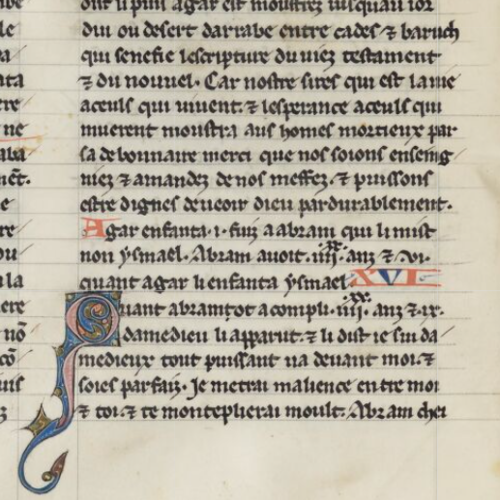 ont li puis agar est moustrez iusquau ior
dui ou desert darrabe entre cades ⁊ barach
qui senefie lescripture du viez testament
⁊ du nouuel. Car nostre sires qui est la uie
aceuls qui uiuent. ⁊ lesperance aceuls qui
muerent moustra aus homes mortieux par
sa debonnaire merci que nos soions enseing
niez ⁊ amandez de nos meffez. ⁊ puissons
estre dignes de ueoir dieu pardurablement.
Agar enfanta .i. fuiz a abram qui li mist
non ysmael. Abram auoit .iiii.xx. anz ⁊ .vi.
quant agar li enfanta ysmael. XVI
Quant abram tot acompli .iiii.xx. anz ⁊ ix.
damedieu li apparut. ⁊ li dist ie sui da
medieux tout puissant ua deuant moi. ⁊
soies parfaiz. Je metrai malience entre moi
⁊ toi. ⁊ te monteplierai moult. Abram chei